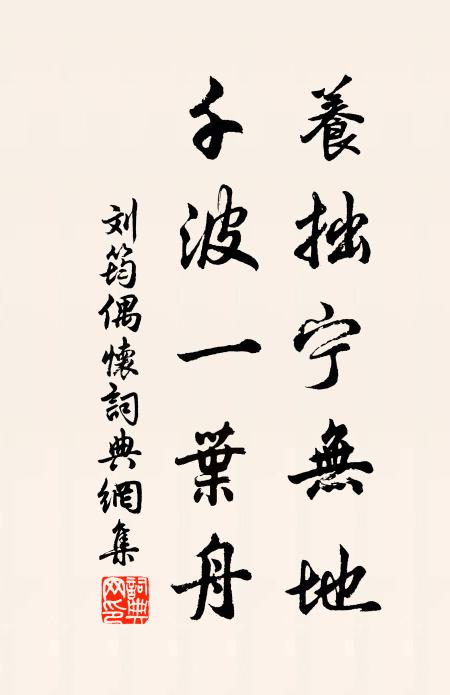 養拙宁無地
千波一葉舟
刘筠偶懷詞典網集
詞典网印